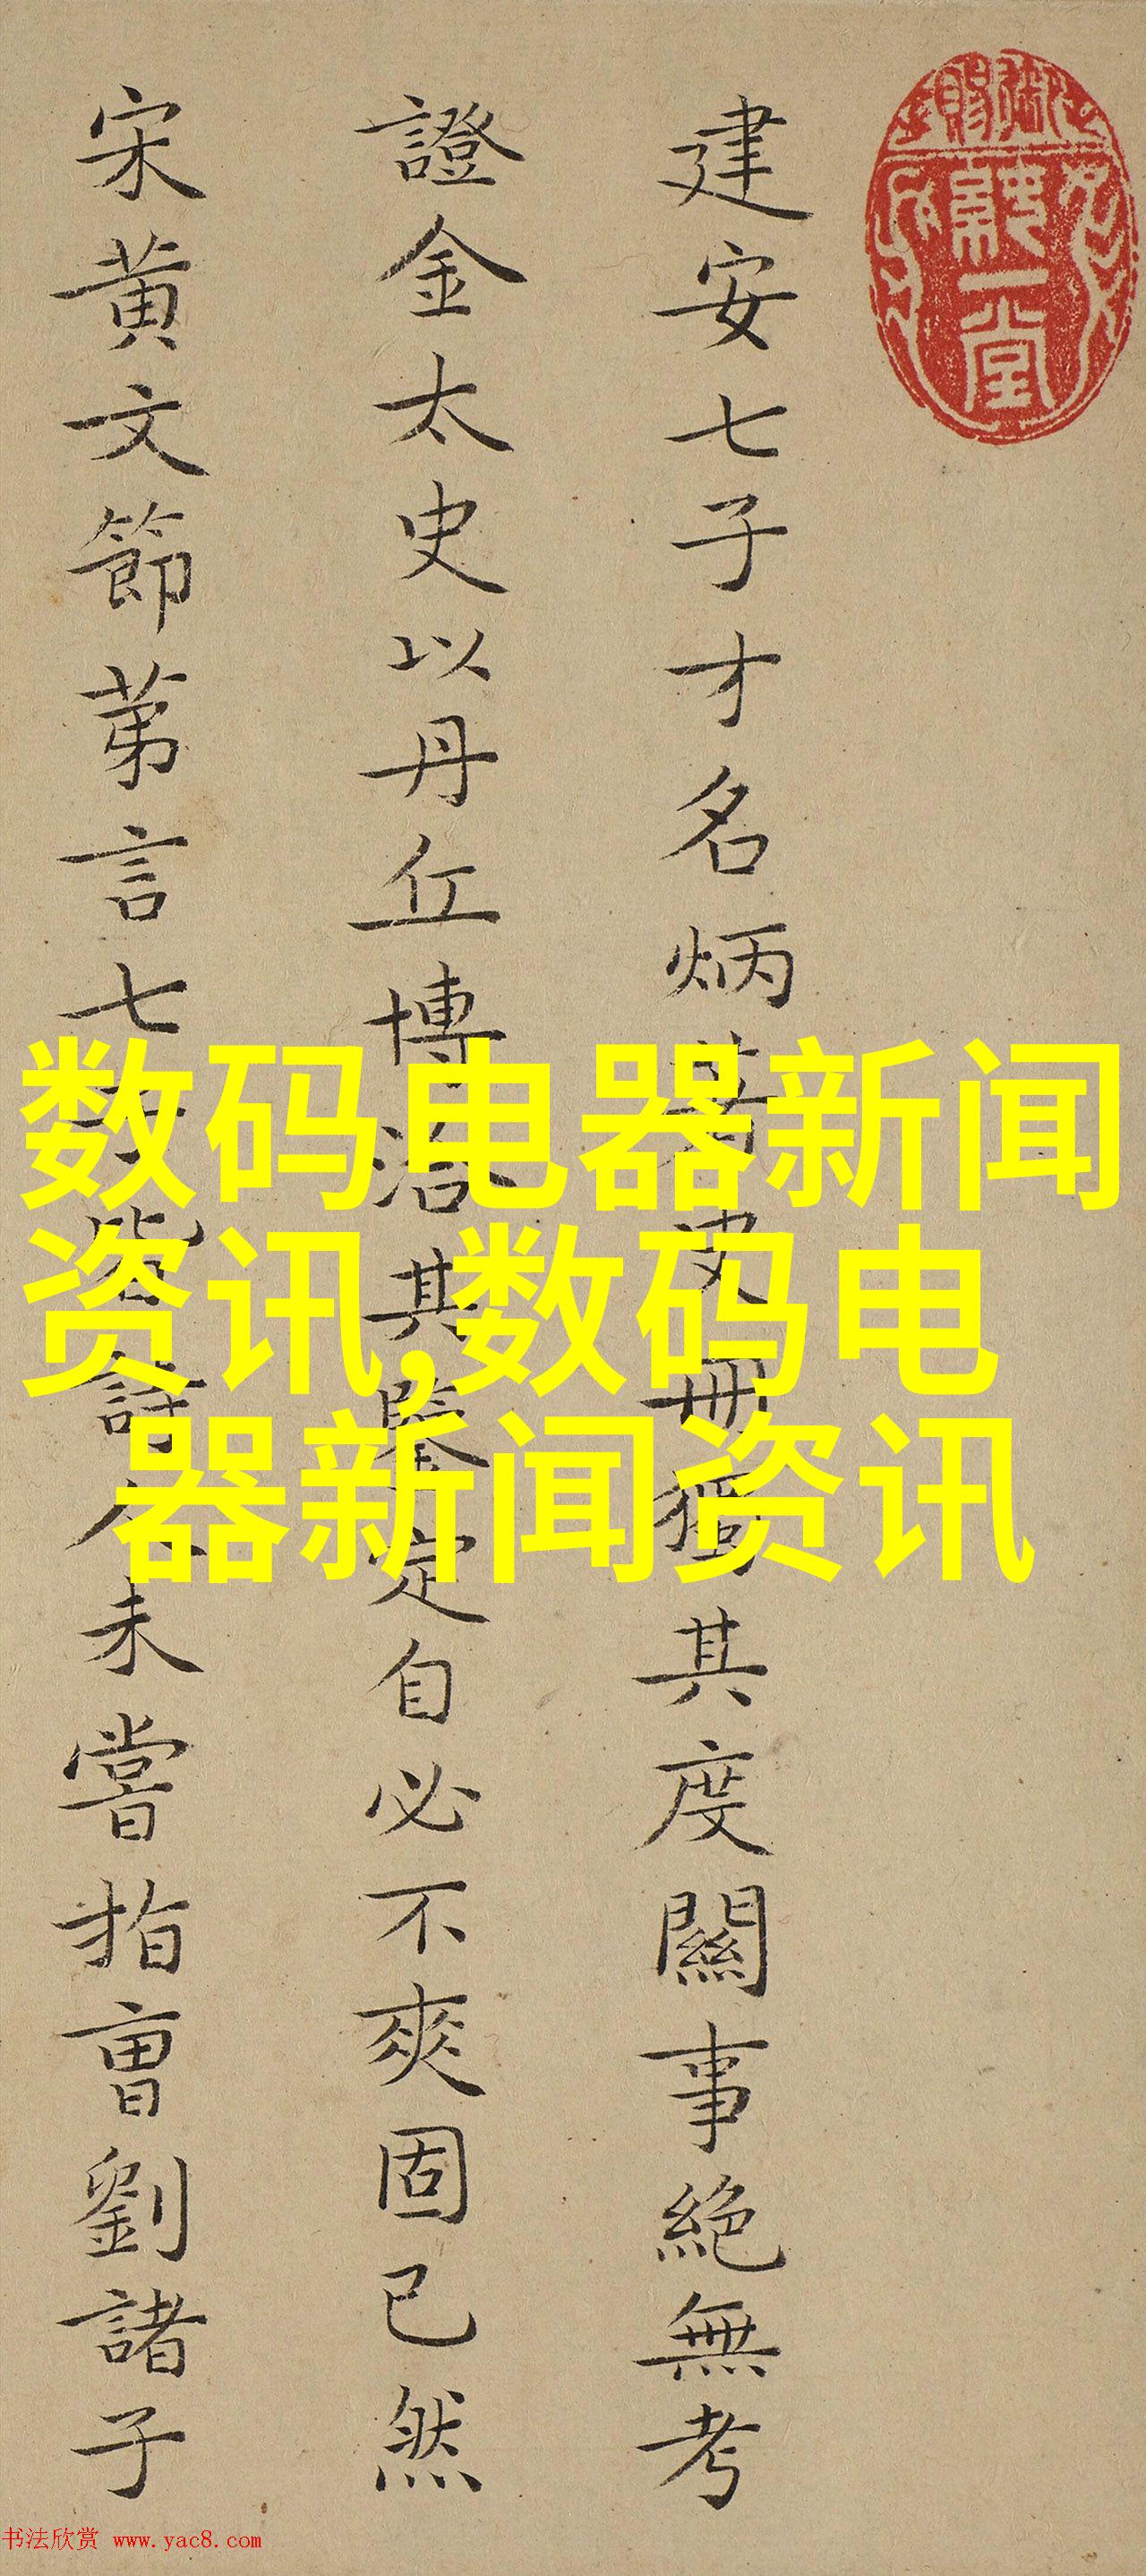 建安七子才名炳著史冊獨其度關事絕無考
證金太史以丹丘博洽其鑒定自必不爽固已然
宋黃文節苐言七子皆詩人未嘗指曹劉諸子
数码电器新闻
资讯,数码电
器新闻资讯
书法欣赏 www.yac8.com